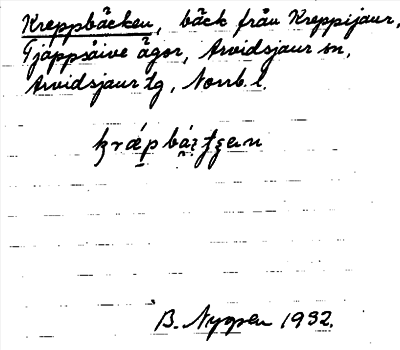 Kreppbäcken, bäck från Kreppijaur,
Tjåppsåive ägor, Arvidsjaur sn,
Arvidsjaur tg, Norrb. l.
B. Nygren 1932.